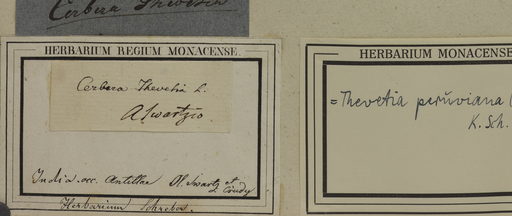 Cerbera Thevetia
HERBARIUM REGIUM MONACENSE.
Cerbera Thevetia L.
A Swartzio
India occ. Antillae Ol. Swartz et
Herbarium Schreber.
HERBARIUM MONACENSE
= Thevetia peruviana (
K. Sch.